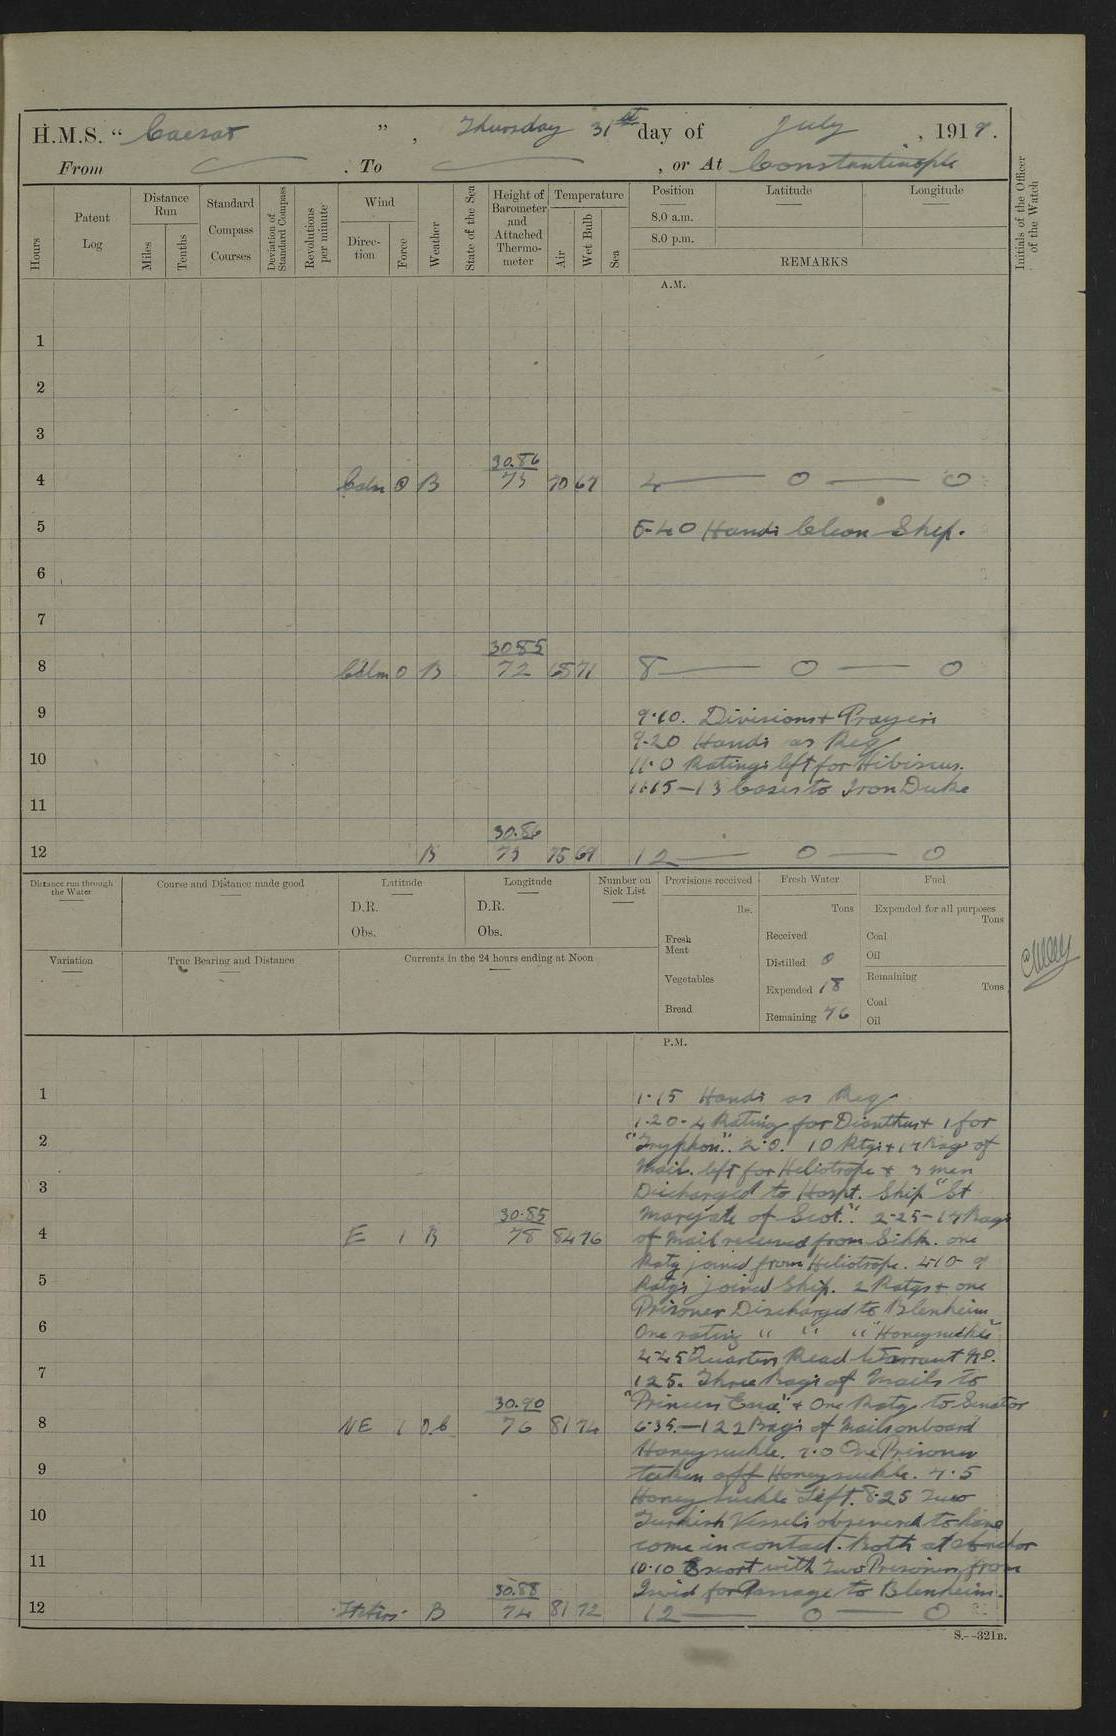 H.M.S. "Caesar", Thursday 31st day of July, 1919.
From . To , or At Constantinople
Hours
Patent Log
Distance Run
Miles
Tenths
Standard Compass Courses
Deviation of Standard Compass
Revolutions per minute
Wind
Direction
Force
Weather
State of the Sea
Height of Barometer and Attached Thermometer
Temperature
Air
Wet Bulb
Sea
Position
Latitude
Longitude
8.0 a.m.
8.0 p.m.
REMARKS
Initials of the Officer of the Watch
A.M.
1
2
3
30.86
4 Calm 0 B 73 70 67 4 — 0 — 0
5 5-40 Hands Clean Ship.
6
7
30.85
8 Calm 0 B 72 68 71 8 — 0 — 0
9 9.10. Divisions + Prayers
9-20 Hands as Req
10 11.0 Ratings left for Hibiscus.
11.15 – 13 Cases to Iron Duke
11
30.86
12 B 73 75 69 12 — 0 — 0
Distance run through the Water
Course and Distance made good
Latitude
D.R.
Obs.
Longitude
D.R.
Obs.
Number on Sick List
Provisions received
lbs.
Fresh Meat
Vegetables
Bread
Fresh Water
Tons
Received
Distilled 0
Expended 18
Remaining 46
Fuel
Expended for all purposes
Tons
Coal
Oil
Remaining
Tons
Coal
Oil
Variation
True Bearing and Distance
Currents in the 24 hours ending at Noon
P.M.
1 1.15 Hands as Req
1.20 - 4 Rating for Dianthus + 1 for
2 "Tryphon". 2.0. 10 Rtgs + 17 Bags of
Mail. left for Heliotrope + 3 men
3 Discharged to Hospt. Ship "St
30.85 Margate of Scot." 2-25 – 17 Bags
4 E 1 B 78 84 76 of Mail received from Sikh. one
Ratg joined from Heliotrope. 4.10 - 9
5 Ratgs joined Ship. 2 Ratgs + one
Prisoner Discharged to Blenheim
6 One rating " " " "Honeysuckle"
4-45 Quarters Read Warrant No.
7 125. Three Bags of Mails to
30.90 "Princess Ena" + One Ratg to Senator
8 NE 1 B.C 76 81 74 6.35. – 122 Bags of Mails onboard
Honeysuckle. 7.0 One Prisoner
9 taken off Honeysuckle. 7.5
Honeysuckle Left. 8.25 Two
10 Turkish Vessels observed to have
come in contact. Both at anchor
11 10.10 Escort with Two Prisoners from
30.88 for Passage to Blenheim.
12 B 74 81 72 12 — 0 — 0
S.--321B.